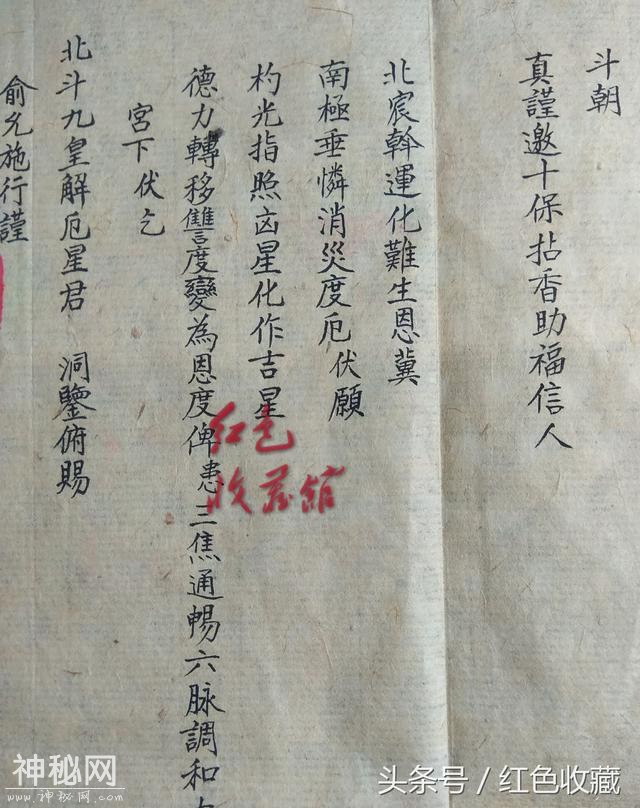 斗朝
真謹邀十保拈香助福信人
北宸斡運化難生恩冀
南極垂憐消災度厄伏願
杓光指照凶星化作吉星
德力轉移讐度變為恩度俾患三焦通暢六脉調和
宮下伏乞
北斗九皇解厄星君 洞鑒俯賜
俞允施行謹
红色
收藏馆
神秘网
www.神秘网.com
头条号/红色收藏